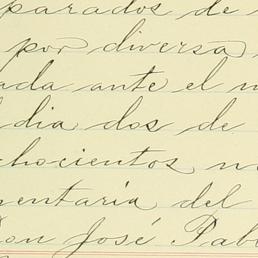 parados de
por diversa
ada ante el
dia dos de
chocientos
mentaria del
Don José Pab